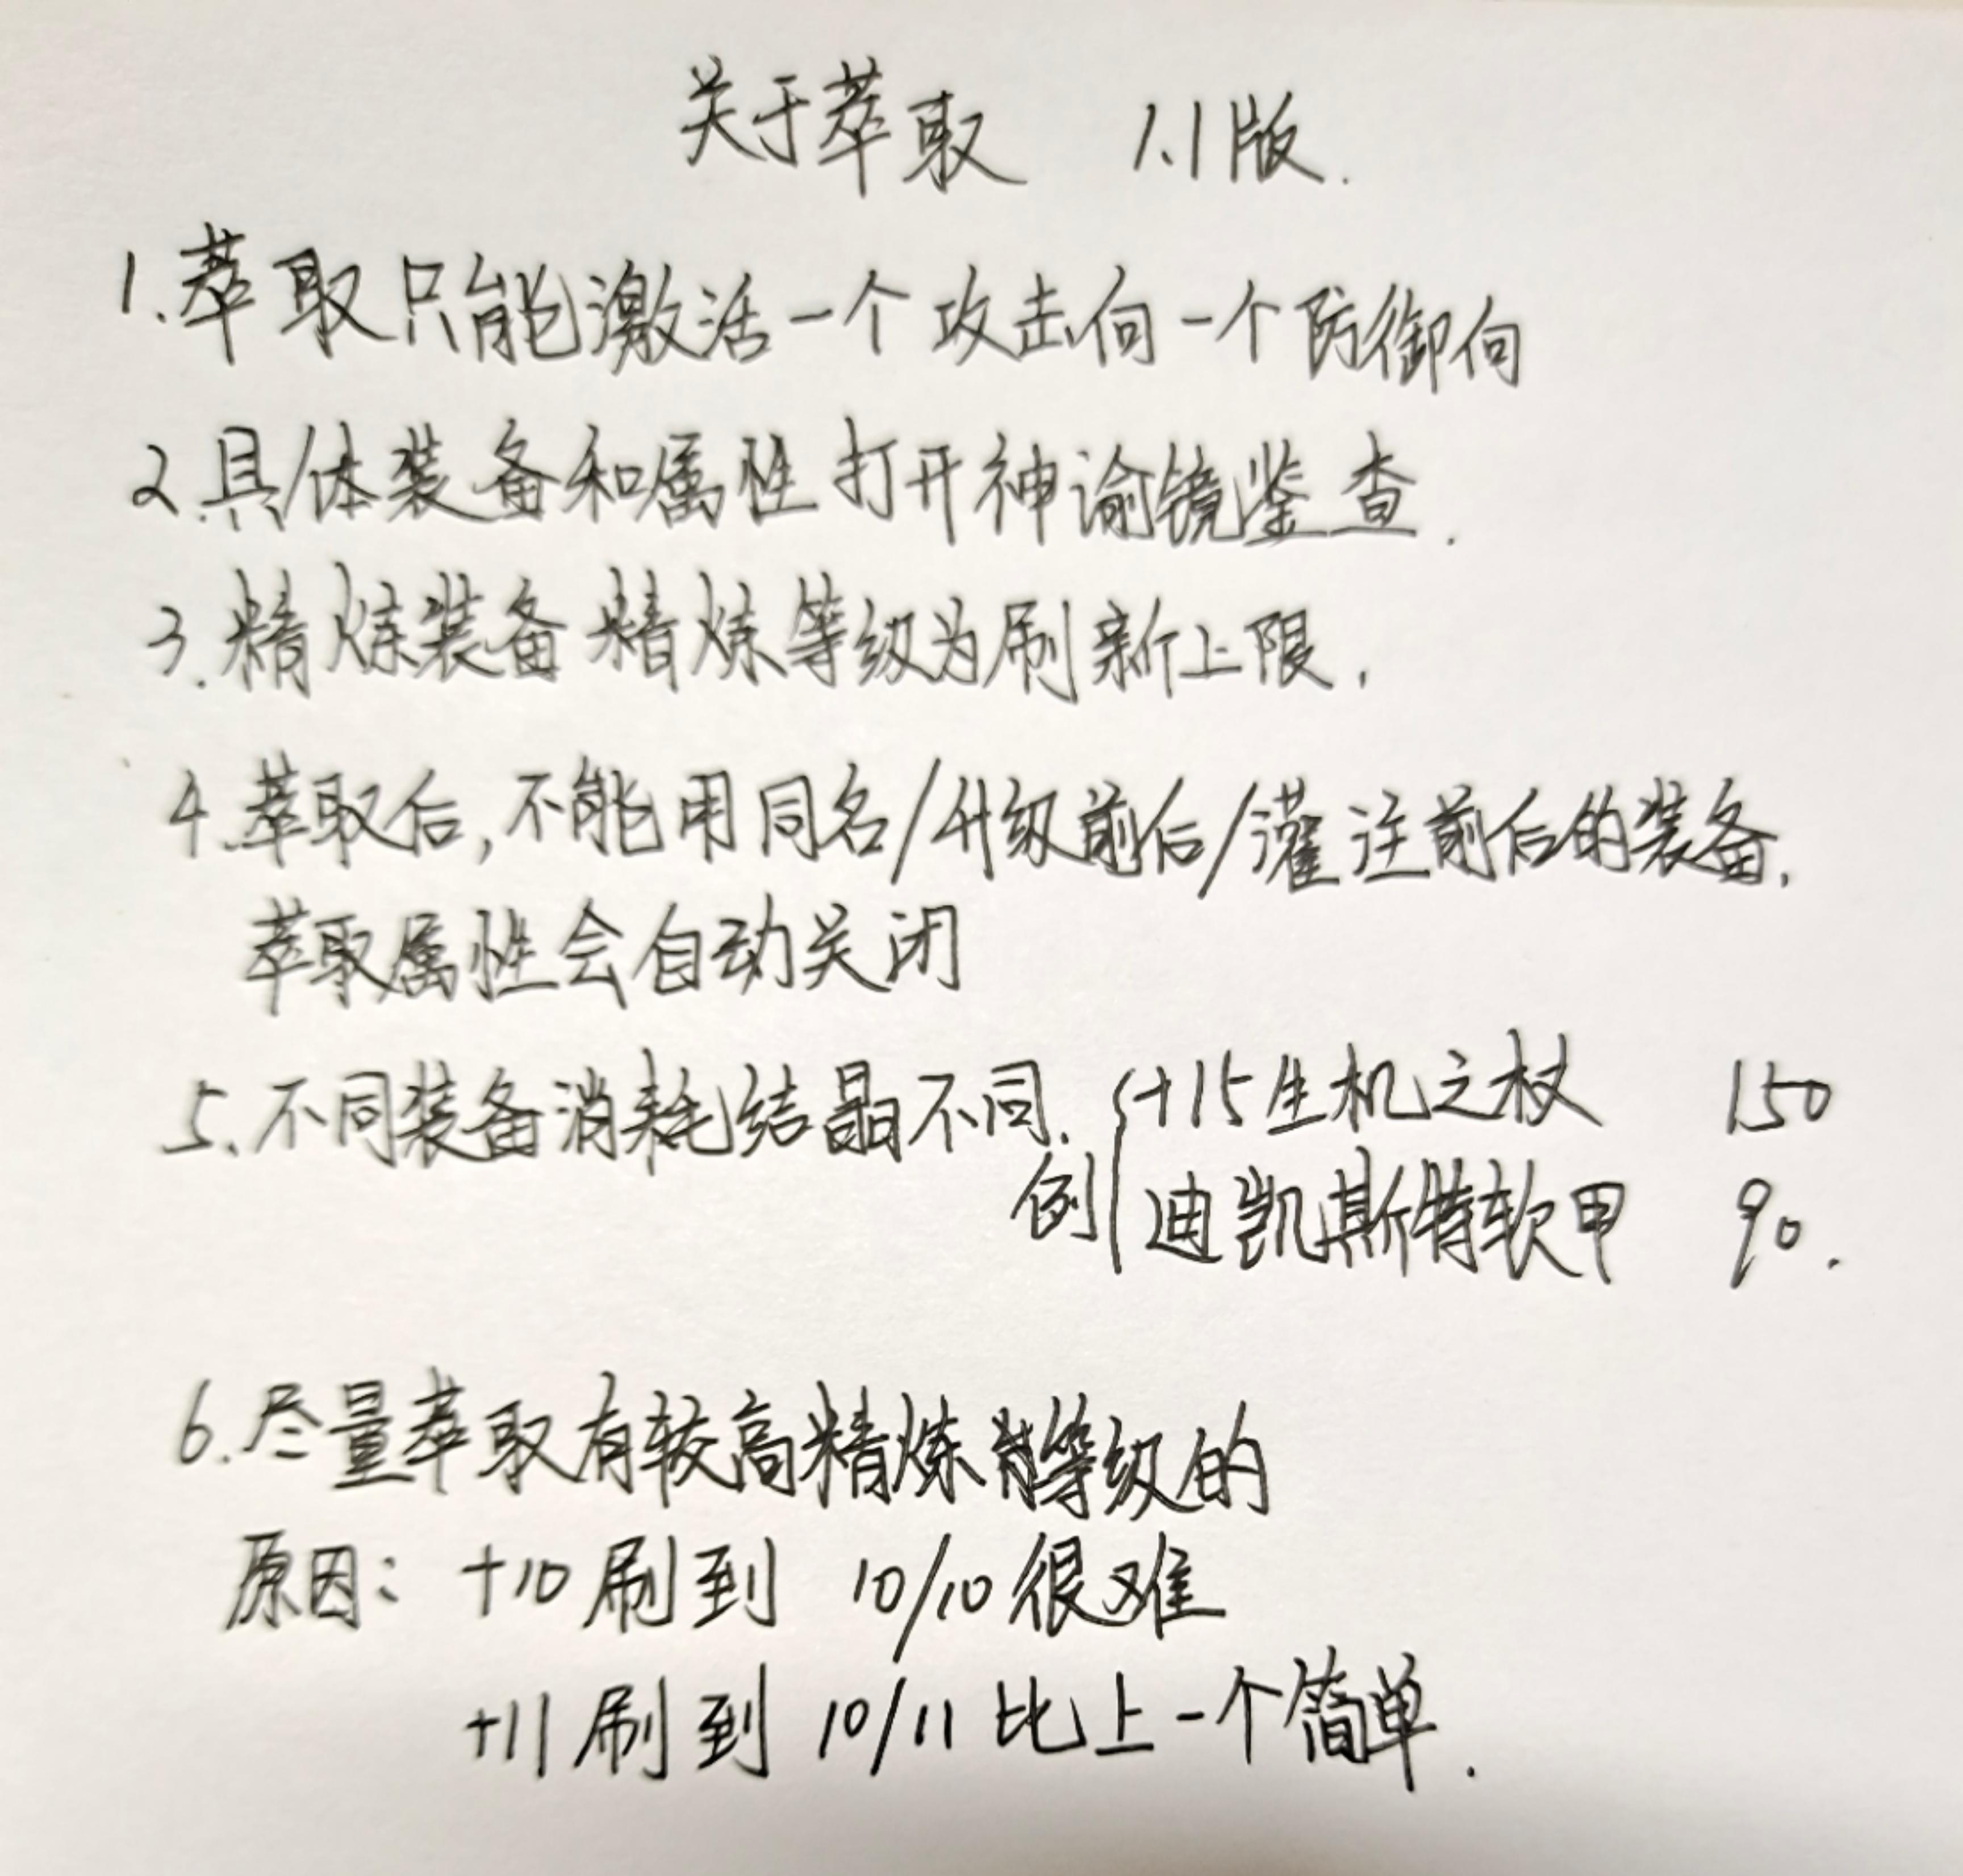 关于萃取 1.1版.
1.萃取只能激活一个攻击向一个防御向
2.具体装备和属性打开神谕镜鉴查.
3.精炼装备精炼等级为刷新上限.
4.萃取后,不能用同名/升级前后/灌注前后的装备.
萃取属性会自动关闭
5.不同装备消耗结晶不同. 例{+15生机之杖 150
迪凯斯特软甲 90.
6.尽量萃取有较高精炼等级的
原因: +10刷到 10/10很难
+11刷到 10/11比上一个简单.